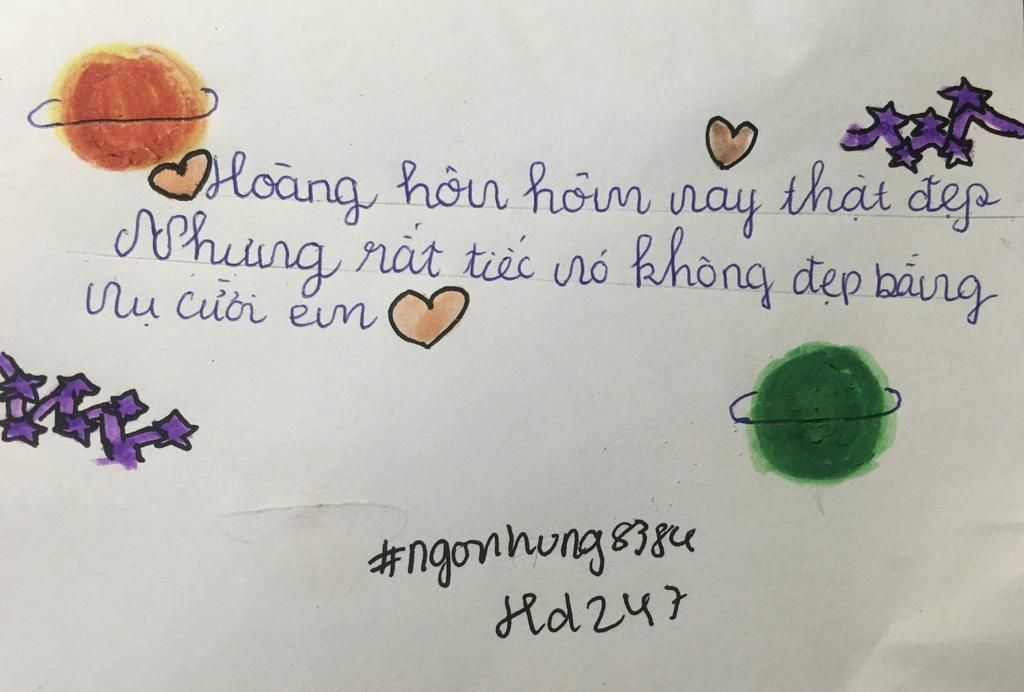 Hoàng hôn hôm nay thật đẹp
Nhưng rất tiếc nó không đẹp bằng
nụ cười em
#ngonhung8384
Hd247